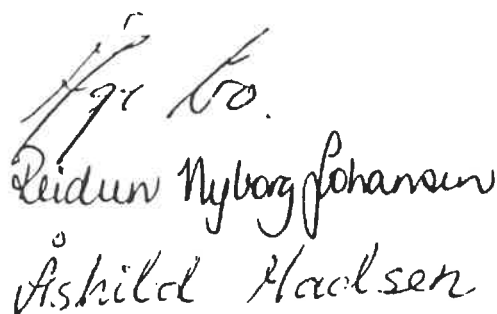 Åge Bo.
Reidun Nyborg Johansen
Åshild Madsen